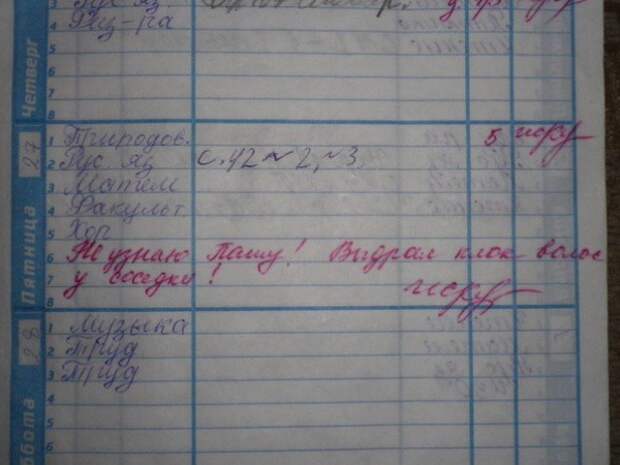 3 Рус. яз.
4 Физ-ра
5
6
7
8
Четверг
27
Пятница
1 Природов. 5
2 Рус. яз. с. 42 № 2, № 3
3 Матем
4 Факульт.
5 Хор
6 Не узнаю Пашу! Выдрал клок волос
7 у соседки!
8
28
1 Музыка
2 Труд
3 Труд
4
5
6